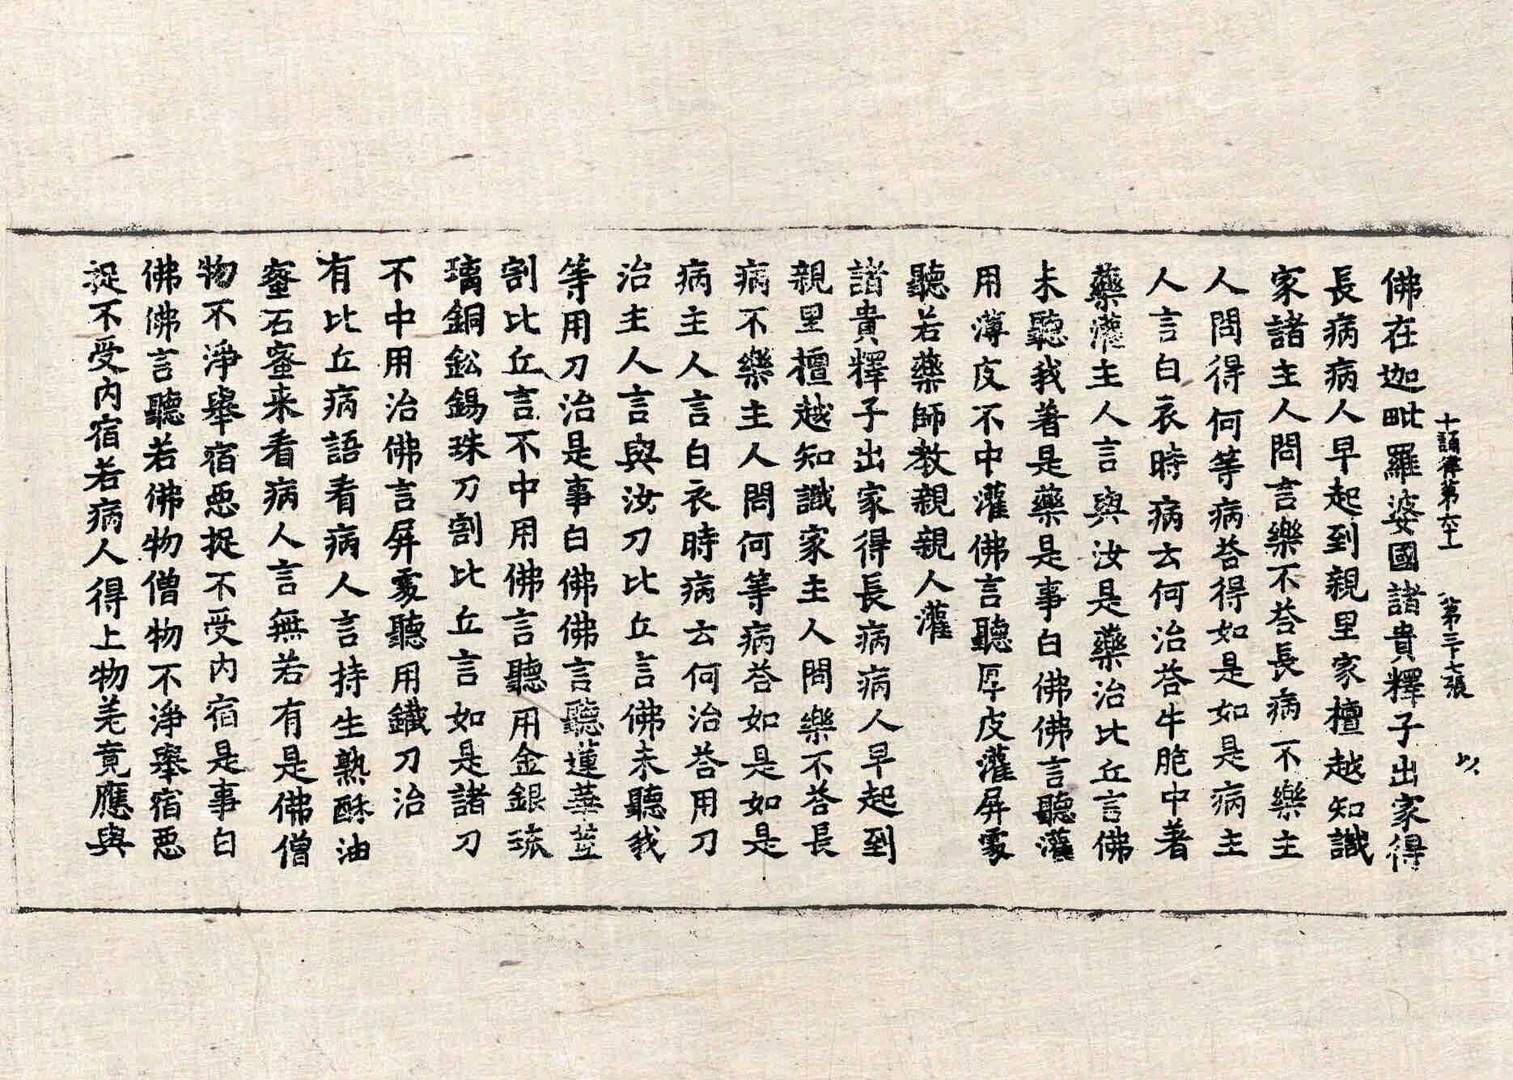 十誦律第六十一　第三十七張
佛在迦毗羅婆國諸貴釋子出家得
長病病人早起到親里家檀越知識
家諸主人問言樂不荅長病不樂主
人問得何等病荅得如是如是病主
人言白衣時病云何治荅牛脃中著
藥灌主人言與汝是藥治比丘言佛
未聽我著是藥是事白佛佛言聽灌
用薄皮不中灌佛言聽厚皮灌屏䖏
聽若藥師教親親人灌
諸貴釋子出家得長病病人早起到
親里檀越知識家主人問樂不荅長
病不樂主人問何等病荅如是如是
病主人言白衣時病云何治荅用刀
治主人言與汝刀比丘言佛未聽我
等用刀治是事白佛佛言聽蓮華莖
割比丘言不中用佛言聽用金銀琉
璃銅鈆錫珠刀割比丘言如是諸刀
不中用治佛言屏䖏聽用鐵刀治
有比丘病語看病人言持生熟酥油
蜜石蜜来看病人言無若有是佛僧
物不淨舉宿惡捉不受內宿是事白
佛佛言聽若佛物僧物不淨舉宿惡
捉不受內宿若病人得上物羌竟應與